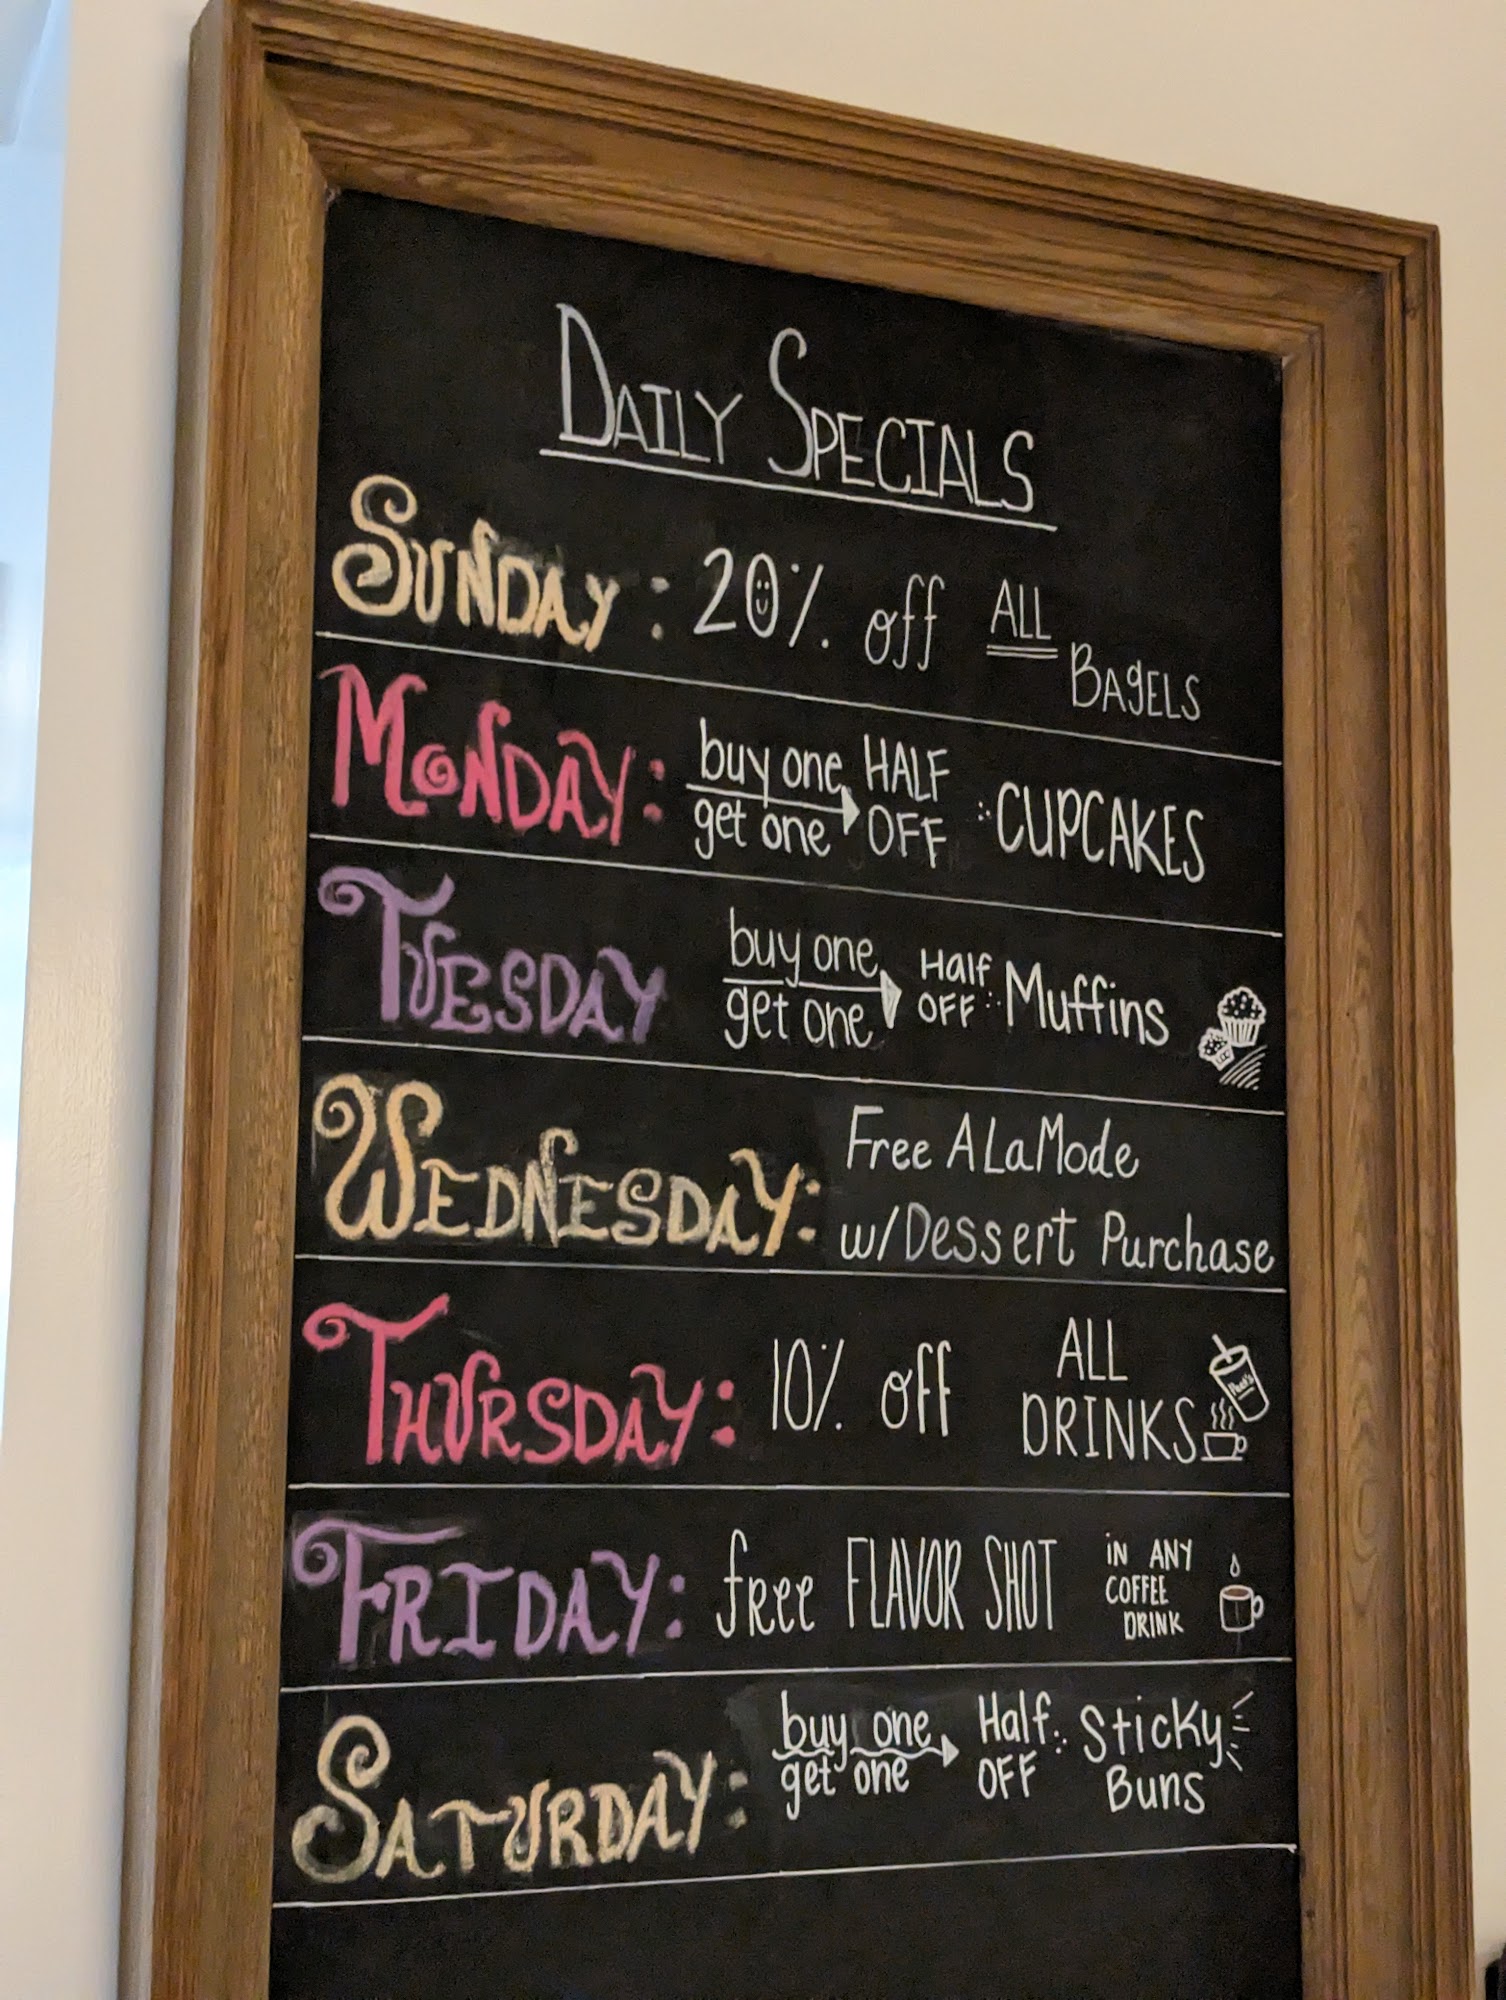 DAILY SPECIALS
SUNDAY: 20% off ALL BAgELS
MONDAY: buy one get one HALF OFF: CUPCAKES
TUESDAY buy one get one Half OFF: Muffins
WEDNESDAY: Free A La Mode
w/Dessert Purchase
THURSDAY: 10% off ALL DRINKS
FRIDAY: free FLAVOR SHOT iN ANY COFFEE DRINK
SATURDAY: buy one get one Half OFF: Sticky Buns